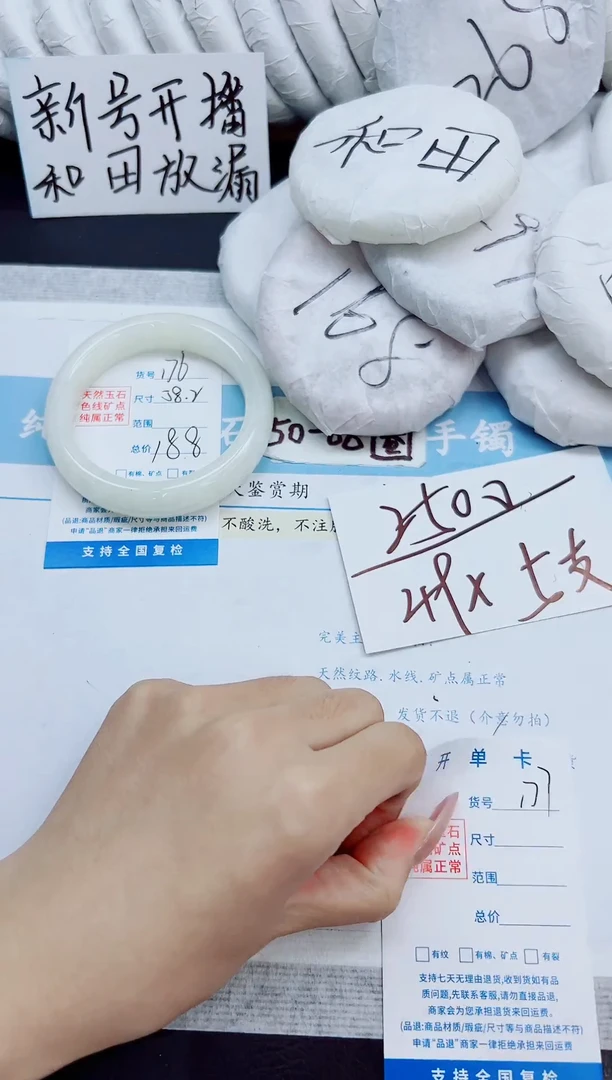 新号开播
和田放漏
268
和田
168
货号 176
天然玉石
色线矿点
纯属正常
尺寸 58.2
范围
总价 188
手镯
鉴赏期
(品退:商品材质/瑕疵/尺寸等与商品描述不符)
申请“品退”商家一律拒绝承担来回运费
支持全国复检
不酸洗，不注
49x
天然纹路.水线.矿点属正常
发货不退（介意勿拍）
开单卡
货号 177
石
矿点
属正常
尺寸
范围
总价
有纹 有棉、矿点 有裂
支持七天无理由退货,收到货如有品
质问题,先联系客服,请勿直接品退,
商家会为您承担退货来回运费。
(品退:商品材质/瑕疵/尺寸等与商品描述不符)
申请“品退”商家一律拒绝承担来回运费
支持全国复检